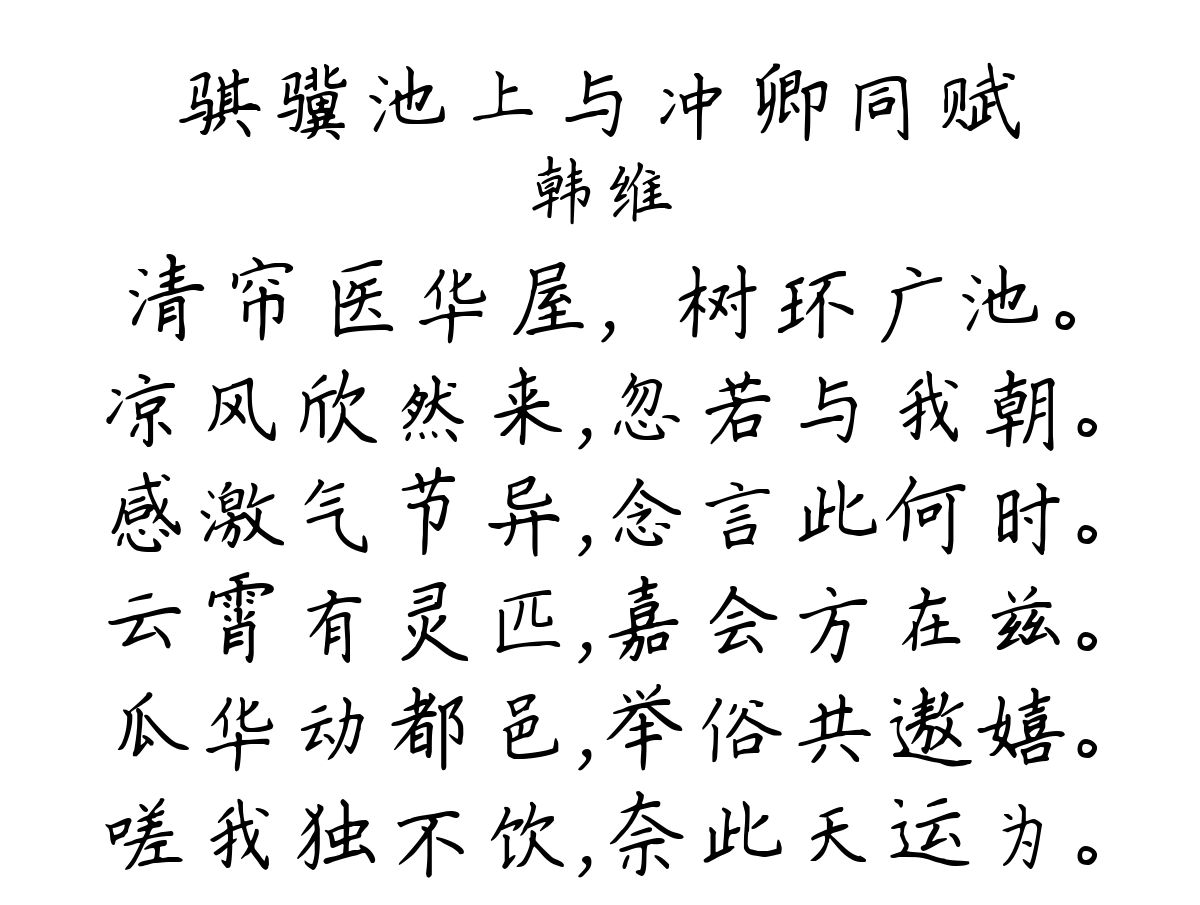 骐骥池上与冲卿同赋
韩维
清帘医华屋，树环广池。
凉风欣然来,忽若与我朝。
感激气节异,念言此何时。
云霄有灵匹,嘉会方在兹。
瓜华动都邑,举俗共遨嬉。
嗟我独不饮,奈此天运为。